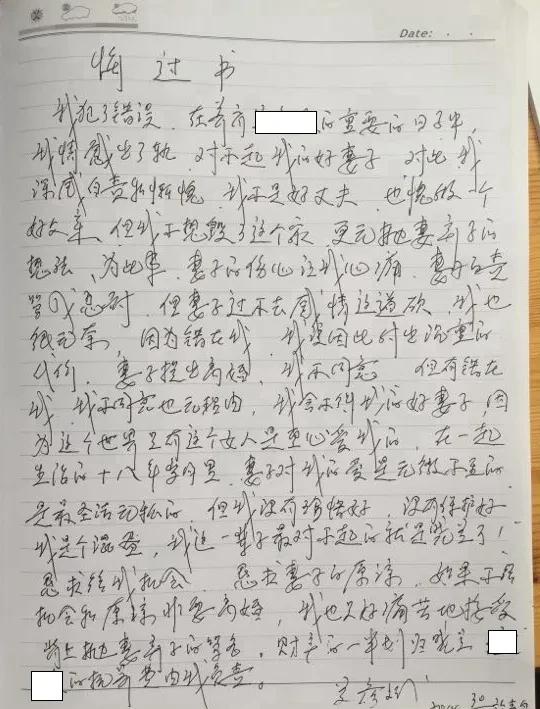 Date:
悔过书
我犯了错误,在养育的重要的日子中,
我情感出了轨,对不起我的好妻子,对此我
深感自责和惭愧,我不是好丈夫,也愧做一个
好父亲,但我不想毁了这个家,更无抛妻弃子的
想法,为此事,妻子的伤心让我心痛,妻子的责
骂我忍耐,但妻子过不去感情这道砍,我也
很无奈,因为错在我,我要因此付出沉重的
代价,妻子提出离婚,我不同意 但有错在
我,我不同意也无理由,我舍不得我的好妻子,因
为这个世界只有这个女人是真心爱我的,在一起
生活的十八年岁月里,妻子对我的爱是无微不至的
是最圣洁无私的 但我没有珍惜好,没有保护好
我是个混蛋,我这一辈子最对不起的就是!
恳求给我机会 恳求妻子的原谅,如果不给
机会和原谅非要离婚,我也只好痛苦地接受
背上抛妻弃子的骂名,财产的一半划归
的抚养费由我负责。